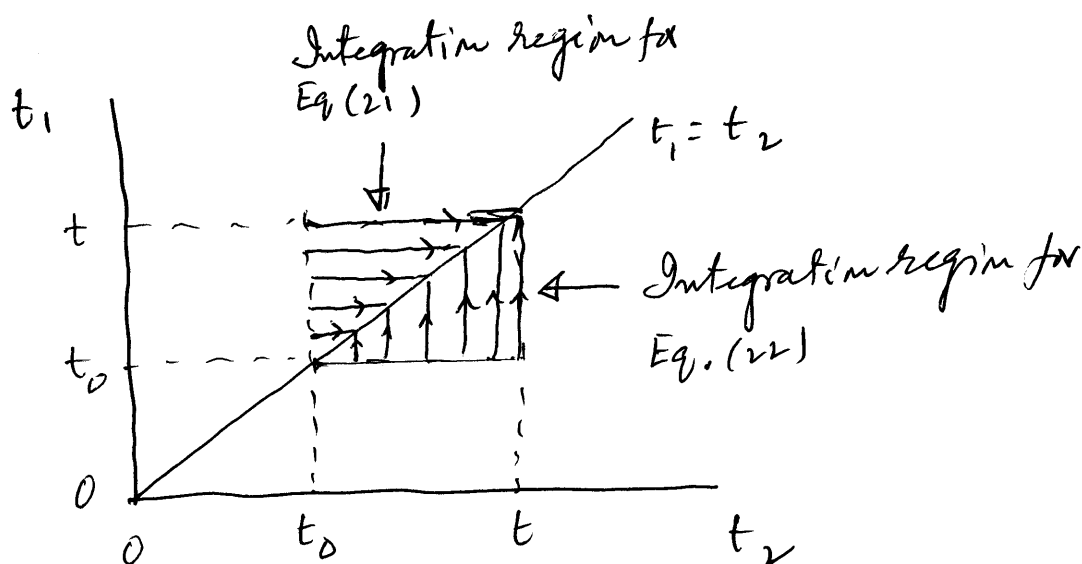 Integration region for
Eq (21)
t₁
t₁ = t₂
t
Integration region for
Eq. (22)
t₀
0
0
t₀
t
t₂